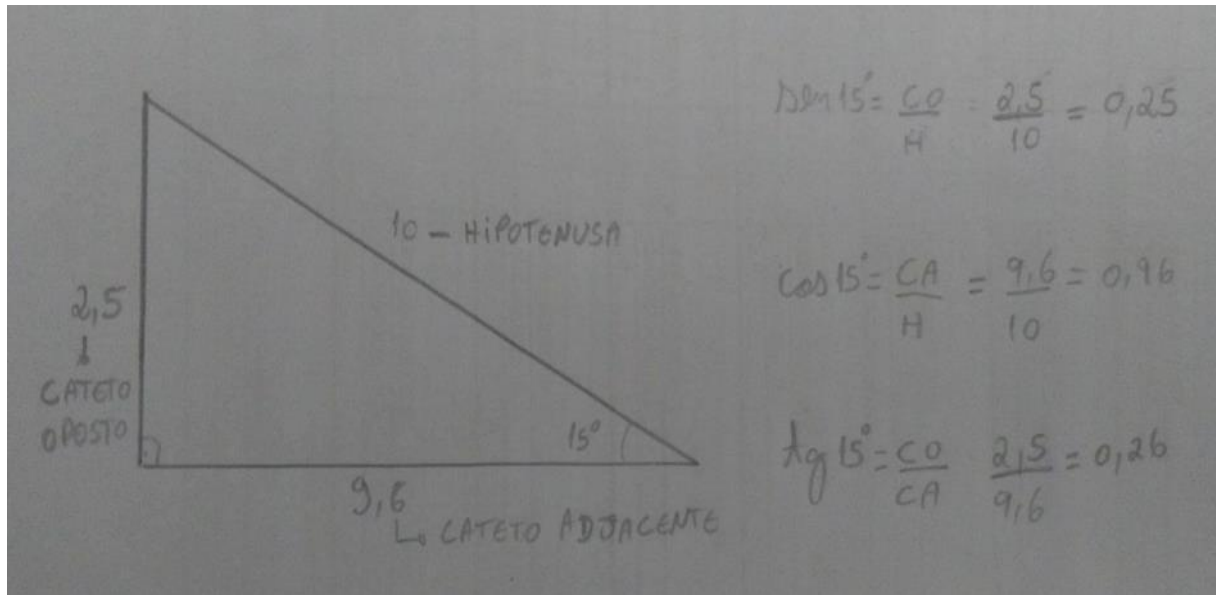 10 – HIPOTENUSA
2,5
↓
CATETO
OPOSTO
15°
9,6
↳ CATETO ADJACENTE
Sen 15° = CO/H = 2,5/10 = 0,25
Cos 15° = CA/H = 9,6/10 = 0,96
tg 15° = CO/CA 2,5/9,6 = 0,26